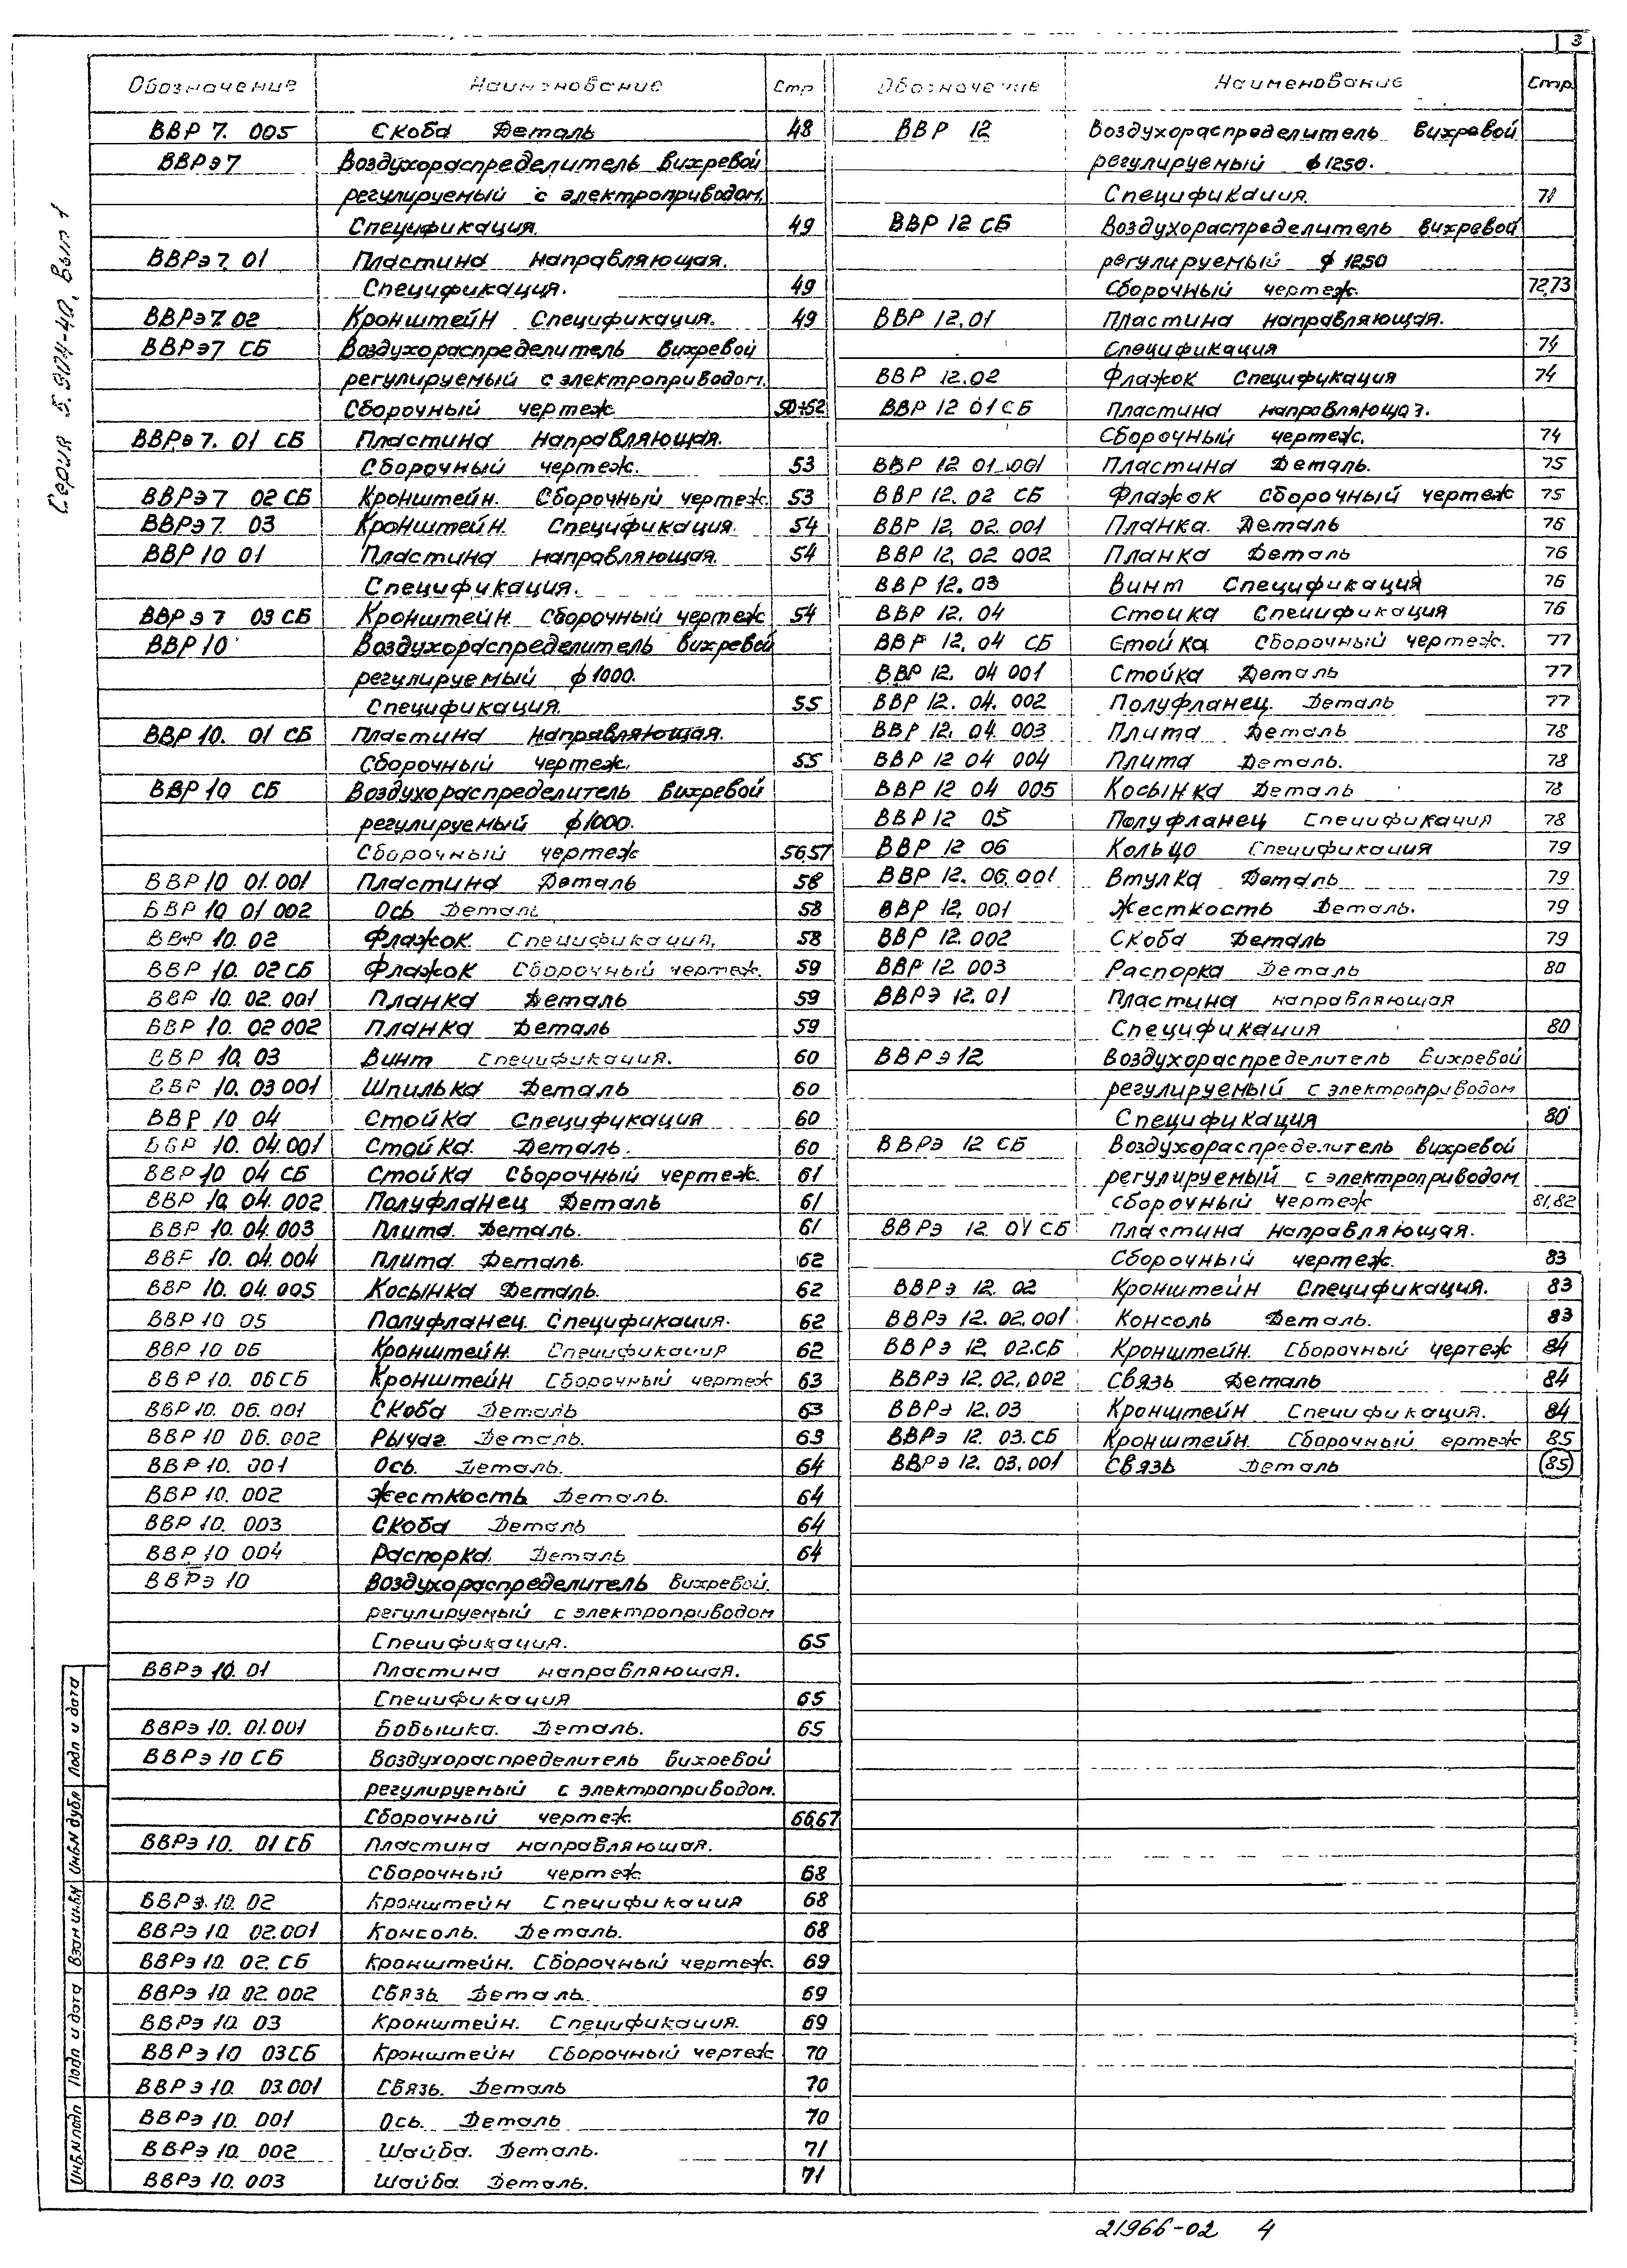 3
Серия 5.904-40, Вып 1
Обозначение Наименование Стр
ВВР 7. 005 Скоба Деталь 48
ВВРэ7 Воздухораспределитель вихревой
регулируемый с электроприводом,
Спецификация. 49
ВВРэ7. 01 Пластина направляющая.
Спецификация. 49
ВВРэ7. 02 Кронштейн Спецификация. 49
ВВРэ7 СБ Воздухораспределитель вихревой
регулируемый с электроприводом.
Сборочный чертеж 50÷52
ВВРэ 7. 01 СБ Пластина направляющая.
Сборочный чертеж. 53
ВВРэ7 02 СБ Кронштейн. Сборочный чертеж. 53
ВВРэ7. 03 Кронштейн. Спецификация. 54
ВВР 10 01 Пластина направляющая. 54
Спецификация.
ВВР э 7 03 СБ Кронштейн. Сборочный чертеж 54
ВВР 10 Воздухораспределитель вихревой
регулируемый ф 1000.
Спецификация. 55
ВВР 10. 01 СБ Пластина направляющая.
Сборочный чертеж. 55
ВВР 10 СБ Воздухораспределитель вихревой
регулируемый ф 1000.
Сборочный чертеж 56,57
ВВР 10 01.001 Пластина Деталь 58
ВВР 10. 01 002 Ось Деталь 58
ВВР 10. 02 Флажок. Спецификация. 58
ВВР 10. 02 СБ Флажок Сборочный чертеж. 59
ВВР 10. 02. 001 Планка Деталь 59
ВВР 10. 02 002 Планка Деталь 59
ВВР 10. 03 Винт Спецификация. 60
ВВР 10. 03 001 Шпилька Деталь 60
ВВР 10 04 Стойка Спецификация 60
ВВР 10. 04.001 Стойка. Деталь. 60
ВВР 10 04 СБ Стойка Сборочный чертеж. 61
ВВР 10. 04. 002 Полуфланец Деталь 61
ВВР 10. 04. 003 Плита. Деталь. 61
ВВР 10. 04. 004 Плита. Деталь. 62
ВВР 10. 04. 005 Косынка Деталь. 62
ВВР 10 05 Полуфланец. Спецификация. 62
ВВР 10 06 Кронштейн. Спецификация 62
ВВР 10. 06 СБ Кронштейн Сборочный чертеж 63
ВВР 10. 06. 001 Скоба Деталь 63
ВВР 10 06. 002 Рычаг. Деталь. 63
ВВР 10. 001 Ось. Деталь. 64
ВВР 10. 002 Жесткость Деталь. 64
ВВР 10. 003 Скоба Деталь 64
ВВР 10 004 Распорка. Деталь 64
ВВРэ 10 Воздухораспределитель вихревой.
регулируемый с электроприводом
Спецификация. 65
ВВРэ 10. 01 Пластина направляющая.
Спецификация 65
ВВРэ 10. 01.001 Бобышка. Деталь. 65
ВВРэ 10 СБ Воздухораспределитель вихревой
регулируемый с электроприводом.
Сборочный чертеж 66,67
ВВРэ 10. 01 СБ Пластина направляющая.
Сборочный чертеж 68
ВВРэ. 10. 02 Кронштейн Спецификация 68
ВВРэ 10. 02.001 Консоль. Деталь. 68
ВВРэ 10. 02. СБ Кронштейн. Сборочный чертеж. 69
ВВРэ 10 02.002 Связь. Деталь. 69
ВВРэ 10. 03 Кронштейн. Спецификация. 69
ВВРэ 10 03 СБ Кронштейн Сборочный чертеж 70
ВВРэ 10. 03.001 Связь. Деталь 70
ВВРэ 10. 001 Ось. Деталь 70
ВВРэ 10. 002 Шайба. Деталь. 71
ВВРэ 10. 003 Шайба. Деталь. 71
Обозначение Наименование Стр
ВВР 12 Воздухораспределитель вихревой
регулируемый ф 1250.
Спецификация. 71
ВВР 12 СБ Воздухораспределитель вихревой
регулируемый ф 1250
Сборочный чертеж. 72,73
ВВР 12.01 Пластина направляющая.
Спецификация 74
ВВР 12.02 Флажок Спецификация 74
ВВР 12 01 СБ Пластина направляющая.
Сборочный чертеж. 74
ВВР 12 01.001 Пластина Деталь. 75
ВВР 12. 02 СБ Флажок Сборочный чертеж 75
ВВР 12. 02.001 Планка. Деталь 76
ВВР 12. 02 002 Планка Деталь 76
ВВР 12.03 Винт Спецификация 76
ВВР 12. 04 Стойка Спецификация 76
ВВР 12. 04 СБ Стойка Сборочный чертеж. 77
ВВР 12. 04 001 Стойка Деталь 77
ВВР 12. 04. 002 Полуфланец. Деталь 77
ВВР 12. 04. 003 Плита Деталь 78
ВВР 12 04 004 Плита Деталь. 78
ВВР 12 04 005 Косынка Деталь 78
ВВР 12 05 Полуфланец Спецификация 78
ВВР 12 06 Кольцо Спецификация 79
ВВР 12. 06.001 Втулка Деталь 79
ВВР 12. 001 Жесткость Деталь. 79
ВВР 12. 002 Скоба Деталь 79
ВВР 12. 003 Распорка Деталь 80
ВВРЭ 12. 01 Пластина направляющая
Спецификация 80
ВВРэ 12 Воздухораспределитель вихревой
регулируемый с электроприводом
Спецификация 80
ВВРэ 12 СБ Воздухораспределитель вихревой
регулируемый с электроприводом
Сборочный чертеж 81,82
ВВРэ 12. 01 СБ Пластина направляющая.
Сборочный чертеж. 83
ВВРэ 12. 02 Кронштейн Спецификация. 83
ВВРэ 12. 02.001 Консоль Деталь. 83
ВВРэ 12. 02.СБ Кронштейн. Сборочный чертеж 84
ВВРэ 12.02.002 Связь Деталь 84
ВВРэ 12.03 Кронштейн Спецификация. 84
ВВРэ 12. 03.СБ Кронштейн. Сборочный ертеж 85
ВВРэ 12. 03.001 Связь Деталь 85
Инв.N подл Подп и дата Взам инв.N Инв.N дубл Подп и дата
21966-02 4